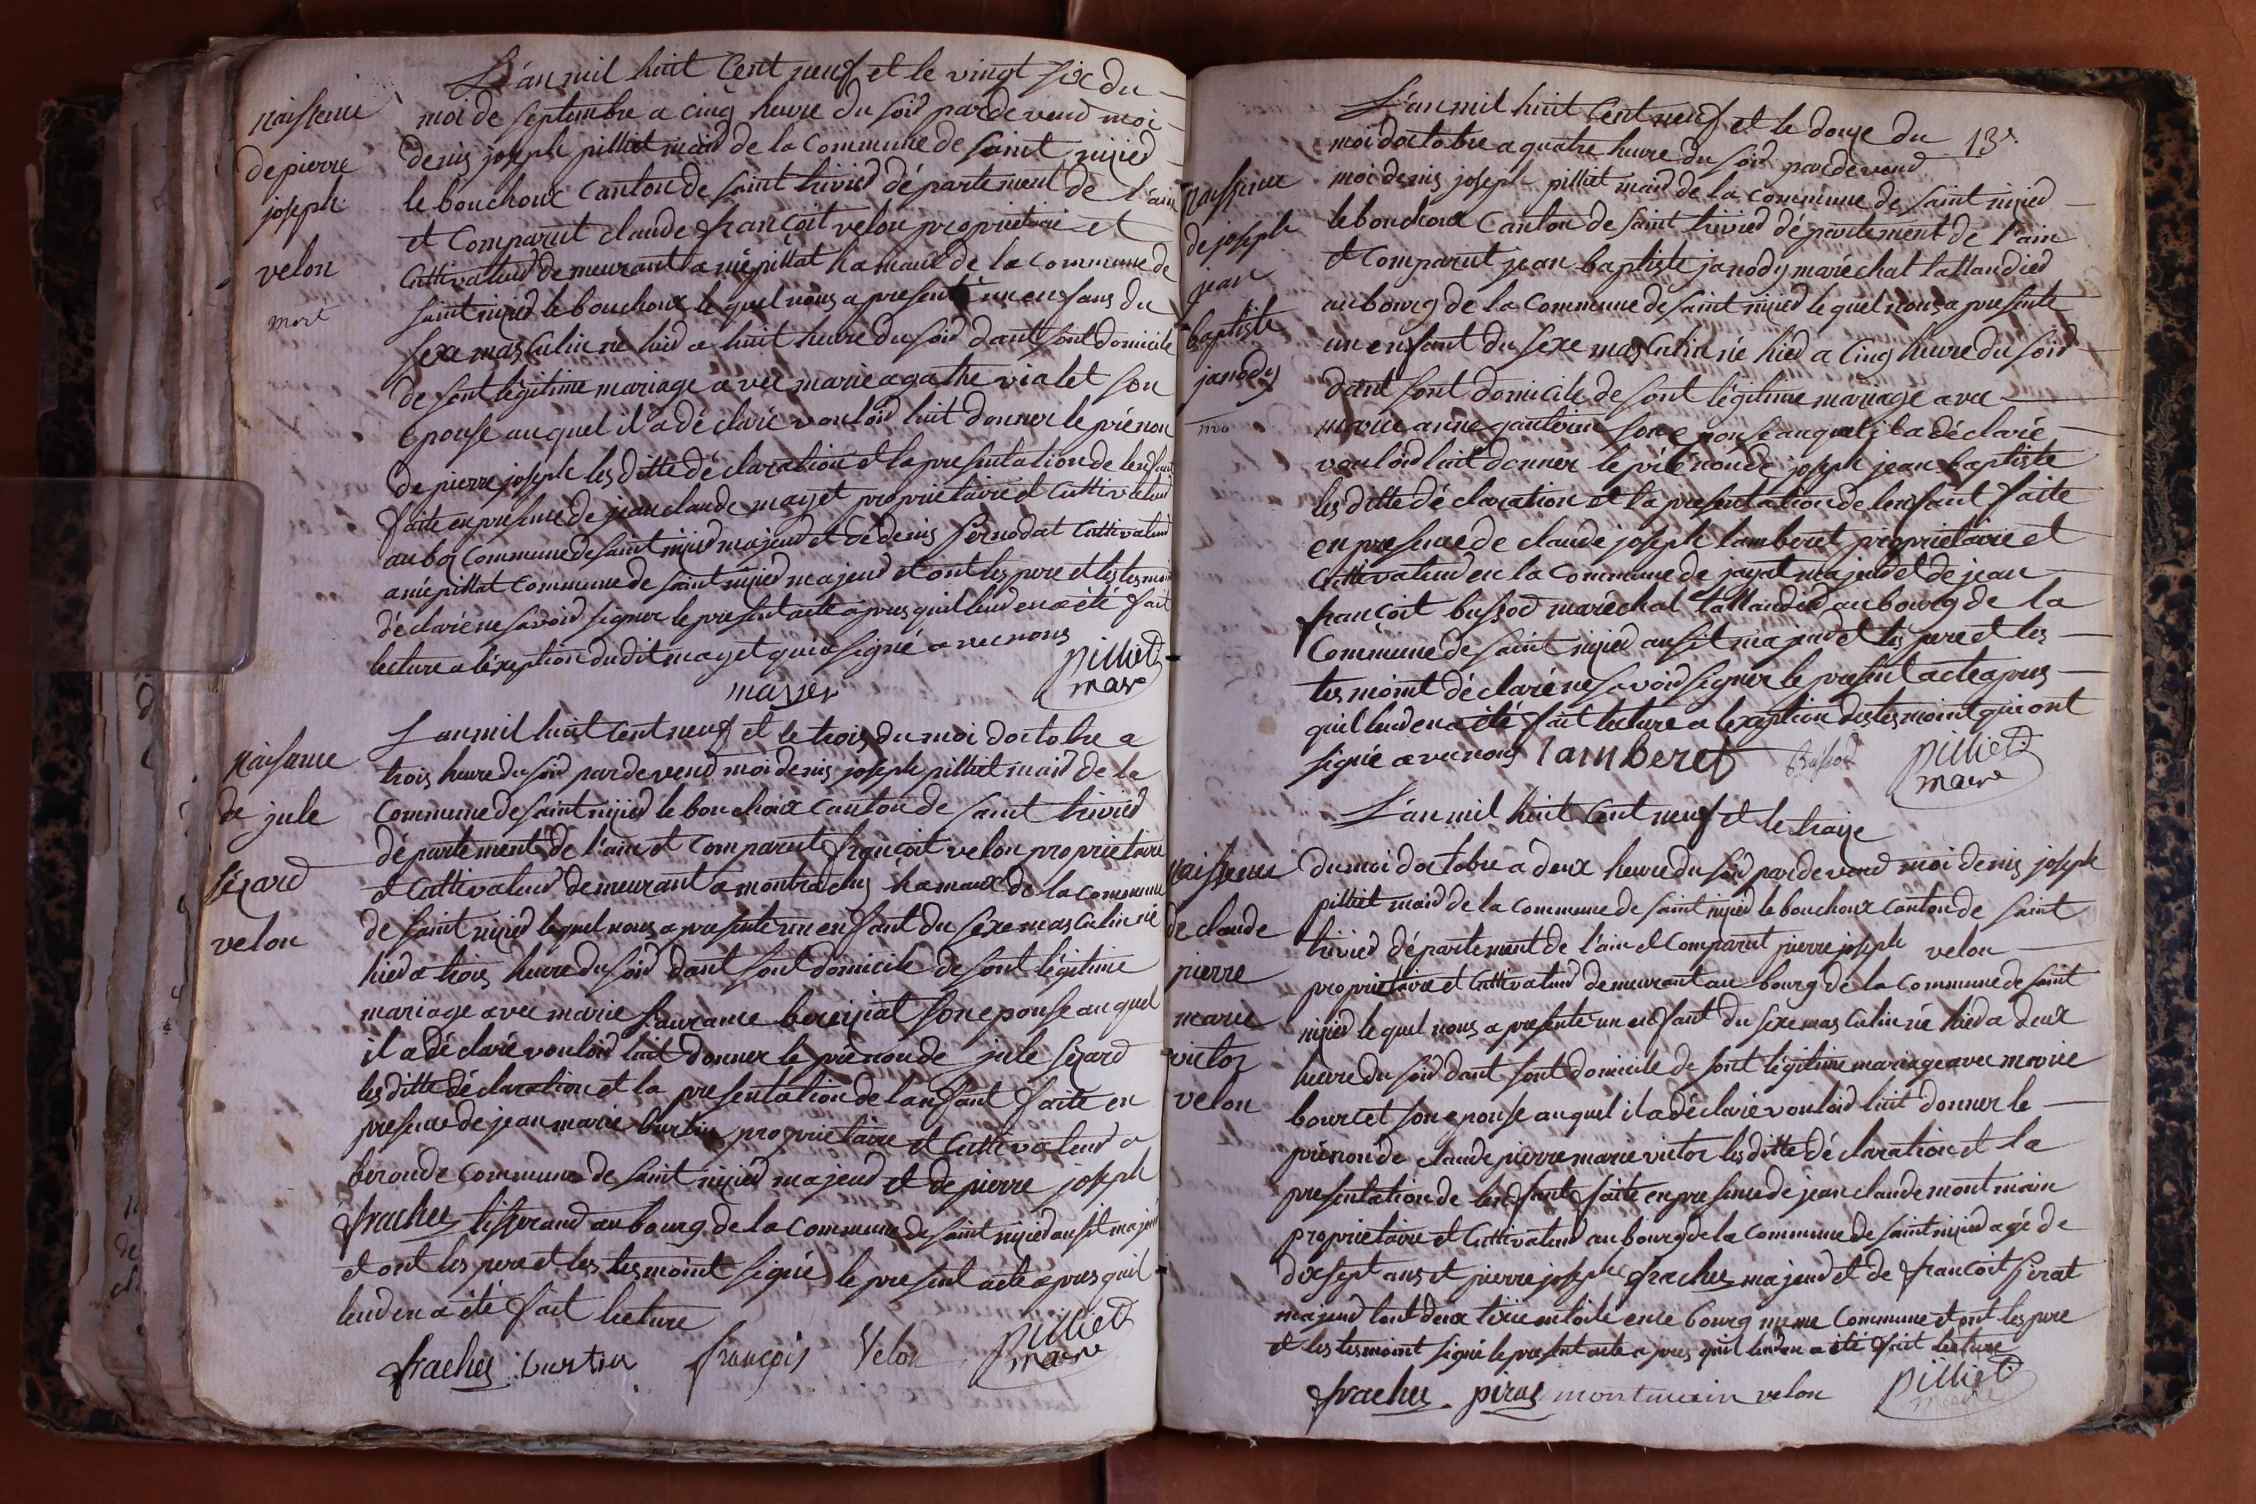 L'an mil huit Cent neuf et le vingt six du
naissence
de pierre
joseph
velon
mort
moi de septembre a cinq heure du soird pardevend moi
denis joseph pilliet maird de la Commune de saint nizied
le bouchoux Canton de saint trivied département de l'ain
et Comparut claude françoit velon proprietaire et
Cuttivateud demeurant a mépillat hamaux de la commune de
saint nizied le bouchoux le quel nous a presenté un enfans du
sexe masculin né hied a huit heure du soird dant sont domicile
de sont légitime mariage avec marie agathe vialet son
épouse auquel il a déclaré vouloird luit donner le prénon
de pierre joseph les ditte déclaration et la presentation de lenfant
faite en presence de jean claude mayet proprietaire et Cuttivateud
au boi Commune de saint nizied majeud et de denis pernodat Cuttivateud
a mépillat commune de saint nizied majeud et ont les pere et les tesmoint
déclaré ne savoird signer le present acte apres quil leud en a été fait
lecture a léxeption dudit mayet qui a signé avec nous
mayer
pilliet
maire
L'an mil huit Cent neuf et le trois du moi doctobre a
naissance
de jule
sézard
velon
trois heure du soird pardevend moi denis joseph pilliet maird de la
Commune de saint nizied le bouchoux Canton de saint trivied
département de l'ain et Comparut françoit velon proprietaire
et Cuttivateud demeurant a montrachy hamaux de la commune
de saint nizied lequel nous a presenté un enfant du sexe masculin né
hied a trois heure du soird dant sont domicile de sont légitime
mariage avec marie laurance bereyiat son epouse auquel
il a déclaré vouloird luit donner le prénon de jule sézard
les ditte déclaration et la presentation de lanfant faite en
presence de jean marie burtin proprietaire et Cuttivateud a
béronde commune de saint nizied majeud et de pierre joseph
frachey tisserand au bourg de la commune de saint nizied ausit majeud
et ont les pere et les tesmoint signé le present acte apres quil
leud en a été fait lecture
frachey burtin françois Velon pilliet
maire
L'an mil huit Cent neuf et le douze du 13e
naissence
de joseph
jean
baptiste
janody
mo
moi doctobre a quatre heure du soird pardevend
moi denis joseph pilliet maird de la commune de saint nizied
le bouchoux Canton de saint trivied département de l'ain
et Comparut jean baptiste janody maréchal tallandied
au bourg de la Commune de saint nizied le quel nous a presenté
un enfant du sexe masculin né hied a Cinq heure du soird
dant sont domicile de sont légitime mariage avec
marie anne son epouse auquel il a déclaré
vouloird luit donner le prénon de joseph jean baptiste
les ditte déclaration et la presentation de lenfant faite
en presence de claude joseph lamberet proprietaire et
Cuttivateud en la Commune de jayat majeud et de jean
françoit bussod maréchal tallandied au bourg de la
Commune de saint nizied ausit majeud et les pere et les
tesmoint déclaré ne savoird signer le present acte apres
quil leud en a été fait lecture a lexeption des tesmoint qui ont
signé avec nous lamberet Bussod pilliet
maire
L'an mil huit Cent neuf et le traize
naissence
de claude
pierre
marie
victor
velon
du moi doctobre a deux heure du soird pardevend moi denis joseph
pilliet maird de la commune de saint nizied le bouchoux canton de saint
trivied département de l'ain et Comparut pierre joseph velon
proprietaire et Cuttivateud demeurant au bourg de la Commune de saint
nizied le quel nous a presenté un enfant du sexe masculin né hied a deux
heure du soird dant sont domicile de sont légitime mariage avec marie
bourcet son epouse auquel il a déclaré vouloird luit donner le
prénon de claude pierre marie victor les ditte déclaration et la
presentation de lenfant faite en presence de jean claude montmain
proprietaire et Cuttivateud au bourg de la commune de saint nizied agé de
dixsept ans et pierre joseph frachey majeud et de françoit pirat
majeud tout deux tixié en toile en ce bourg meme Commune et ont les pere
et les tesmoint signé le present acte apres quil leud en a été fait lecture
frachey pirat montmain velon pilliet
maire